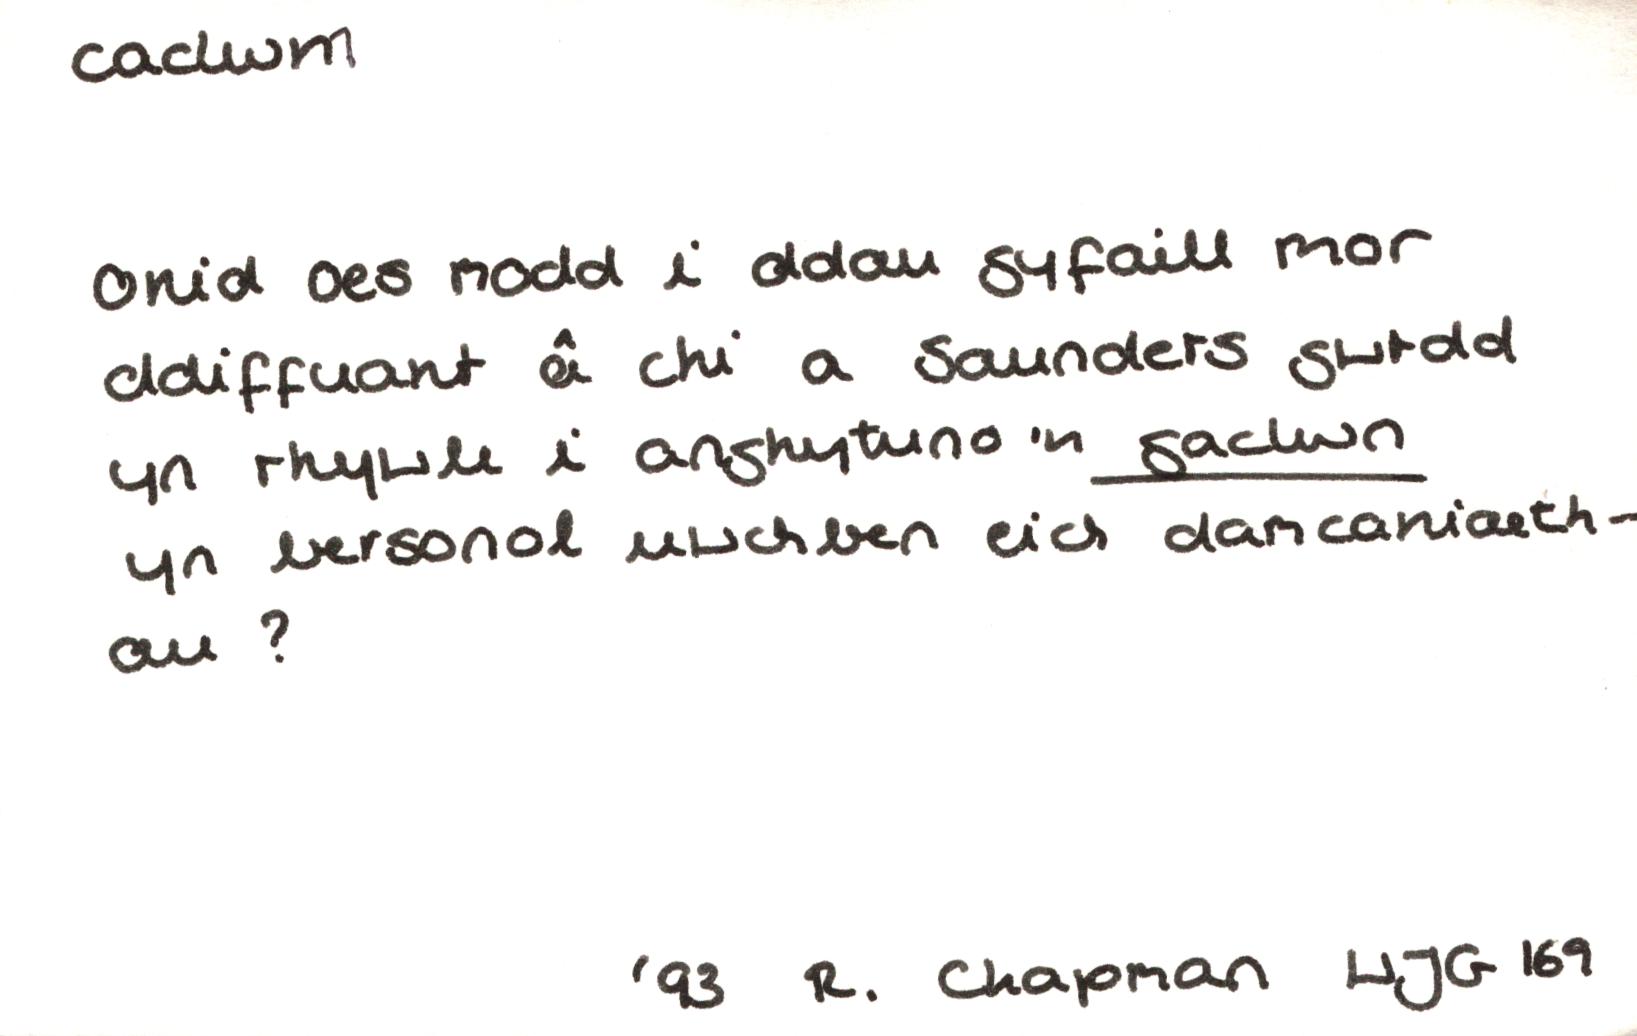 cadwm
Onid oes modd i ddau gyfaill mor
ddiffuant â chi a Saunders gwrdd
yn rhywle i anghytuno'n gadwn
yn bersonol uwchben eich damcaniaeth-
au ?
'93 R. Chapman WJG 169